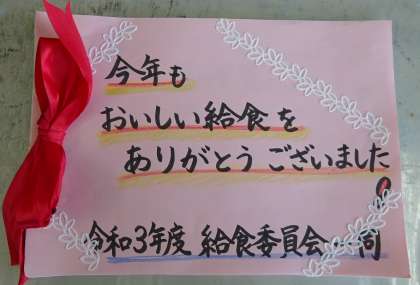 今年も
おいしい給食を
ありがとうございました!
令和3年度 給食委員会一同